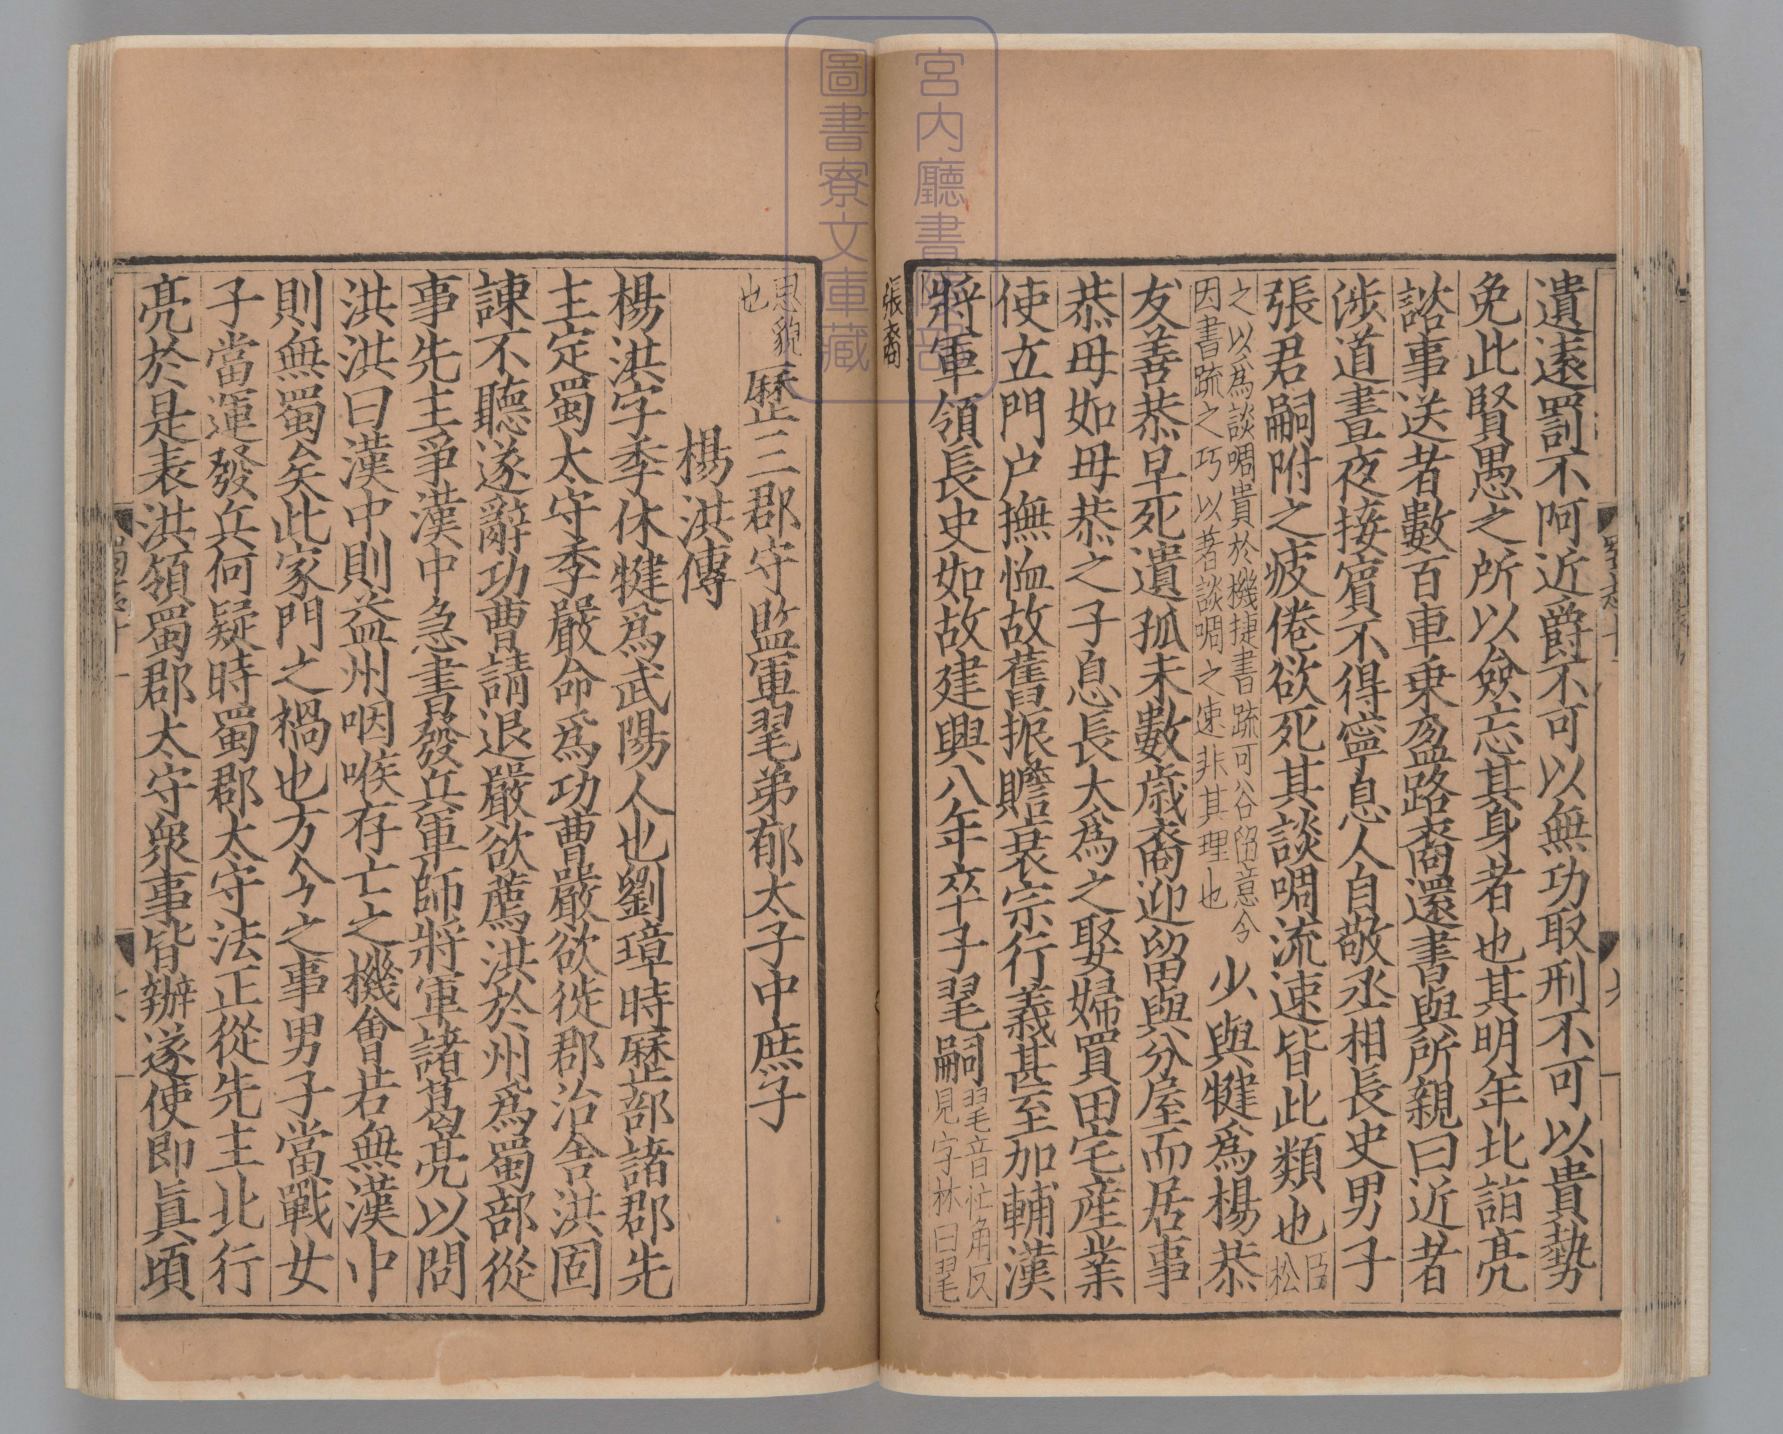 遺遠罰不阿近爵不可以無功取刑不可以貴勢
免此賢愚之所以僉忘其身者也其明年北詣亮
諮事送者數百車乗盈路裔還書與所親曰近者
渉道晝夜接賔不得寧息人自敬丞相長史男子
張君嗣附之疲倦欲死其談啁流速皆此類也臣松
之以爲談啁貴於機捷書疏可谷留意今
因書疏之巧以著談啁之速非其理也
少與犍爲楊恭
友善恭早死遺孤未數歳裔迎留與分屋而居事
恭母如母恭之子息長大爲之娶婦買田宅産業
使立門户撫恤故舊振贍衰宗行義甚至加輔漢
將軍領長史如故建興八年卒子毣嗣
毣音忙角反
見字林曰毣
張裔
思貌
也
歷三郡守監軍毣弟郁太子中庶子
楊洪傳
楊洪字季休犍爲武陽人也劉璋時歷部諸郡先
主定蜀太守李嚴命爲功曹嚴欲徙郡治舎洪固
諫不聽遂辭功曹請退嚴欲薦洪於州爲蜀部從
事先主爭漢中急書發兵軍師將軍諸葛亮以問
洪洪曰漢中則益州咽喉存亡之機會若無漢中
則無蜀矣此家門之禍也方今之事男子當戰女
子當運發兵何疑時蜀郡太守法正從先主北行
亮於是表洪領蜀郡太守衆事皆辦遂使即真頃
宮内廳書陵部
圖書寮文庫藏